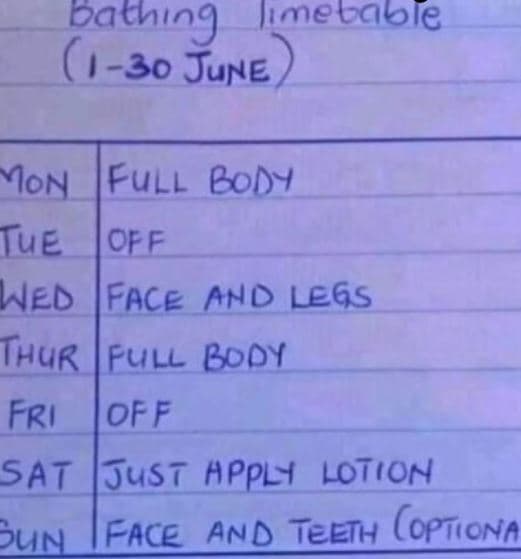 Bathing Timetable
(1-30 JUNE)
MON FULL BODY
TUE OFF
WED FACE AND LEGS
THUR FULL BODY
FRI OFF
SAT JUST APPLY LOTION
SUN FACE AND TEETH (OPTIONA